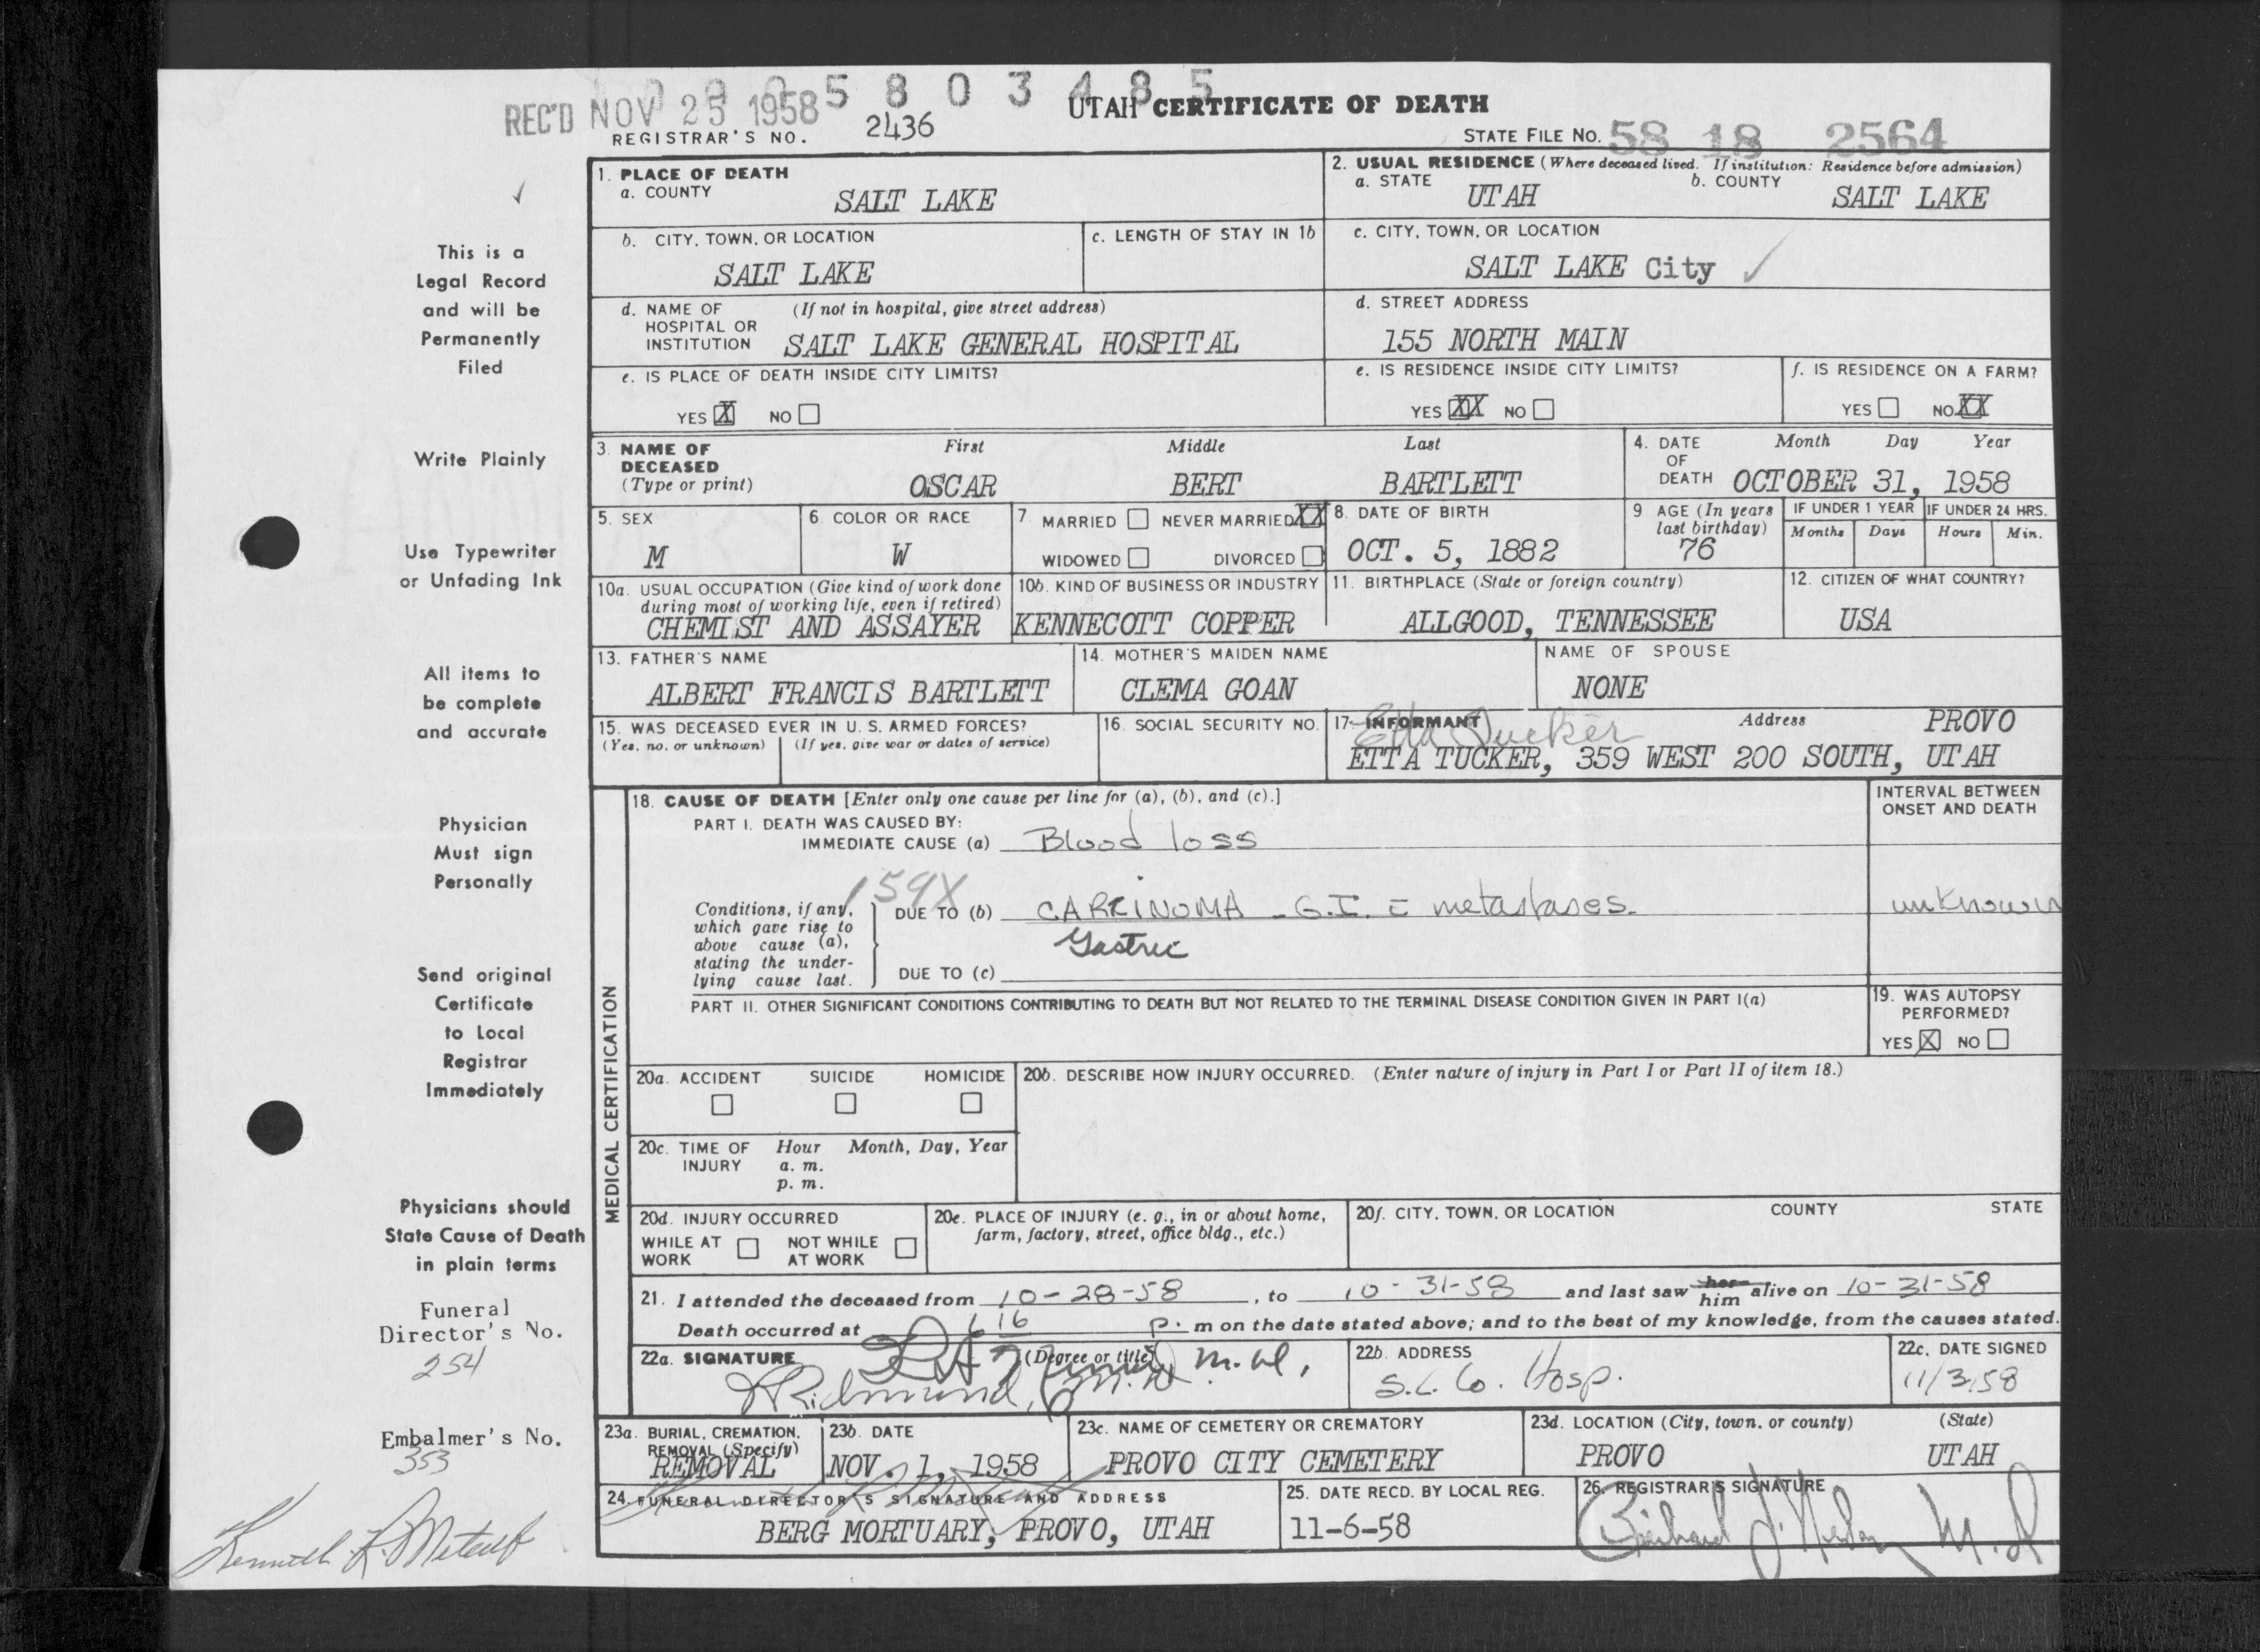 0 0 0 5 8 0 3 4 8 5
REC'D NOV 25 1958
UTAH CERTIFICATE OF DEATH
REGISTRAR'S NO. 2436
STATE FILE NO. 58 18 2564
This is a
Legal Record
and will be
Permanently
Filed
Write Plainly
Use Typewriter
or Unfading Ink
All items to
be complete
and accurate
Physician
Must sign
Personally
Send original
Certificate
to Local
Registrar
Immediately
Physicians should
State Cause of Death
in plain terms
Funeral
Director's No.
254
Embalmer's No.
353
Kenneth L. Metcalf
1. PLACE OF DEATH
a. COUNTY
SALT LAKE
2. USUAL RESIDENCE (Where deceased lived. If institution: Residence before admission)
a. STATE UTAH b. COUNTY SALT LAKE
b. CITY, TOWN, OR LOCATION
SALT LAKE
c. LENGTH OF STAY IN 1b
c. CITY, TOWN, OR LOCATION
SALT LAKE City ✓
d. NAME OF (If not in hospital, give street address)
HOSPITAL OR
INSTITUTION SALT LAKE GENERAL HOSPITAL
d. STREET ADDRESS
155 NORTH MAIN
e. IS PLACE OF DEATH INSIDE CITY LIMITS?
YES X NO
e. IS RESIDENCE INSIDE CITY LIMITS?
YES XX NO
f. IS RESIDENCE ON A FARM?
YES NO XX
3. NAME OF DECEASED (Type or print)
First Middle Last
OSCAR BERT BARTLETT
4. DATE OF DEATH
Month Day Year
OCTOBER 31, 1958
5. SEX
M
6. COLOR OR RACE
W
7. MARRIED NEVER MARRIED XX
WIDOWED DIVORCED
8. DATE OF BIRTH
OCT. 5, 1882
9 AGE (In years last birthday)
76
IF UNDER 1 YEAR
Months Days
IF UNDER 24 HRS.
Hours Min.
10a. USUAL OCCUPATION (Give kind of work done
during most of working life, even if retired)
CHEMIST AND ASSAYER
10b. KIND OF BUSINESS OR INDUSTRY
KENNECOTT COPPER
11. BIRTHPLACE (State or foreign country)
ALLGOOD, TENNESSEE
12. CITIZEN OF WHAT COUNTRY?
USA
13. FATHER'S NAME
ALBERT FRANCIS BARTLETT
14. MOTHER'S MAIDEN NAME
CLEMA GOAN
NAME OF SPOUSE
NONE
15. WAS DECEASED EVER IN U. S. ARMED FORCES?
(Yes, no, or unknown) (If yes, give war or dates of service)
16. SOCIAL SECURITY NO.
17. INFORMANT Address
Etta Tucker
PROVO
ETTA TUCKER, 359 WEST 200 SOUTH, UTAH
MEDICAL CERTIFICATION
18. CAUSE OF DEATH [Enter only one cause per line for (a), (b), and (c).]
INTERVAL BETWEEN
ONSET AND DEATH
PART I. DEATH WAS CAUSED BY:
IMMEDIATE CAUSE (a) Blood loss
159X
Conditions, if any,
which gave rise to
above cause (a),
stating the under-
lying cause last.
DUE TO (b) CARCINOMA - G.I. c̄ metastases. unknown
Gastric
DUE TO (c)
PART II. OTHER SIGNIFICANT CONDITIONS CONTRIBUTING TO DEATH BUT NOT RELATED TO THE TERMINAL DISEASE CONDITION GIVEN IN PART I(a)
19. WAS AUTOPSY
PERFORMED?
YES X NO
20a. ACCIDENT SUICIDE HOMICIDE
20b. DESCRIBE HOW INJURY OCCURRED. (Enter nature of injury in Part I or Part II of item 18.)
20c. TIME OF INJURY
Hour Month, Day, Year
a. m.
p. m.
20d. INJURY OCCURRED
WHILE AT WORK NOT WHILE AT WORK
20e. PLACE OF INJURY (e. g., in or about home,
farm, factory, street, office bldg., etc.)
20f. CITY, TOWN, OR LOCATION COUNTY STATE
21. I attended the deceased from 10-28-58, to 10-31-58 and last saw her him alive on 10-31-58
Death occurred at 1 16 p. m on the date stated above; and to the best of my knowledge, from the causes stated.
22a. SIGNATURE (Degree or title)
M.D.
Richmond, M.D.
22b. ADDRESS
S.L. Co. Hosp.
22c. DATE SIGNED
11/3/58
23a. BURIAL, CREMATION,
REMOVAL (Specify)
REMOVAL
23b. DATE
NOV. 1, 1958
23c. NAME OF CEMETERY OR CREMATORY
PROVO CITY CEMETERY
23d. LOCATION (City, town, or county) (State)
PROVO UTAH
24. FUNERAL DIRECTOR'S SIGNATURE AND ADDRESS
BERG MORTUARY, PROVO, UTAH
25. DATE RECD. BY LOCAL REG.
11-6-58
26. REGISTRAR'S SIGNATURE
M.D.